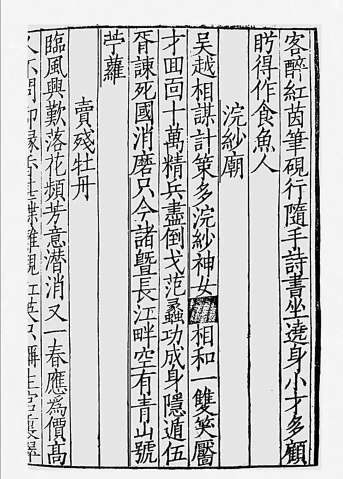 客醉紅茵筆硯行隨手詩書坐遶身小才多顧
盻得作食魚人
浣紗廟
吳越相謀計策多浣紗神女相和一雙笑靨
才囬靣十萬精兵盡倒戈范蠡功成身隱遁伍
胥諫死國消磨只今諸暨長江畔空有青山號
苧蘿
賣殘牡丹
臨風興歎落花頻芳意潛消又一春應爲價高
人不問却緣香甚蝶難親紅英只稱生宮裏翠